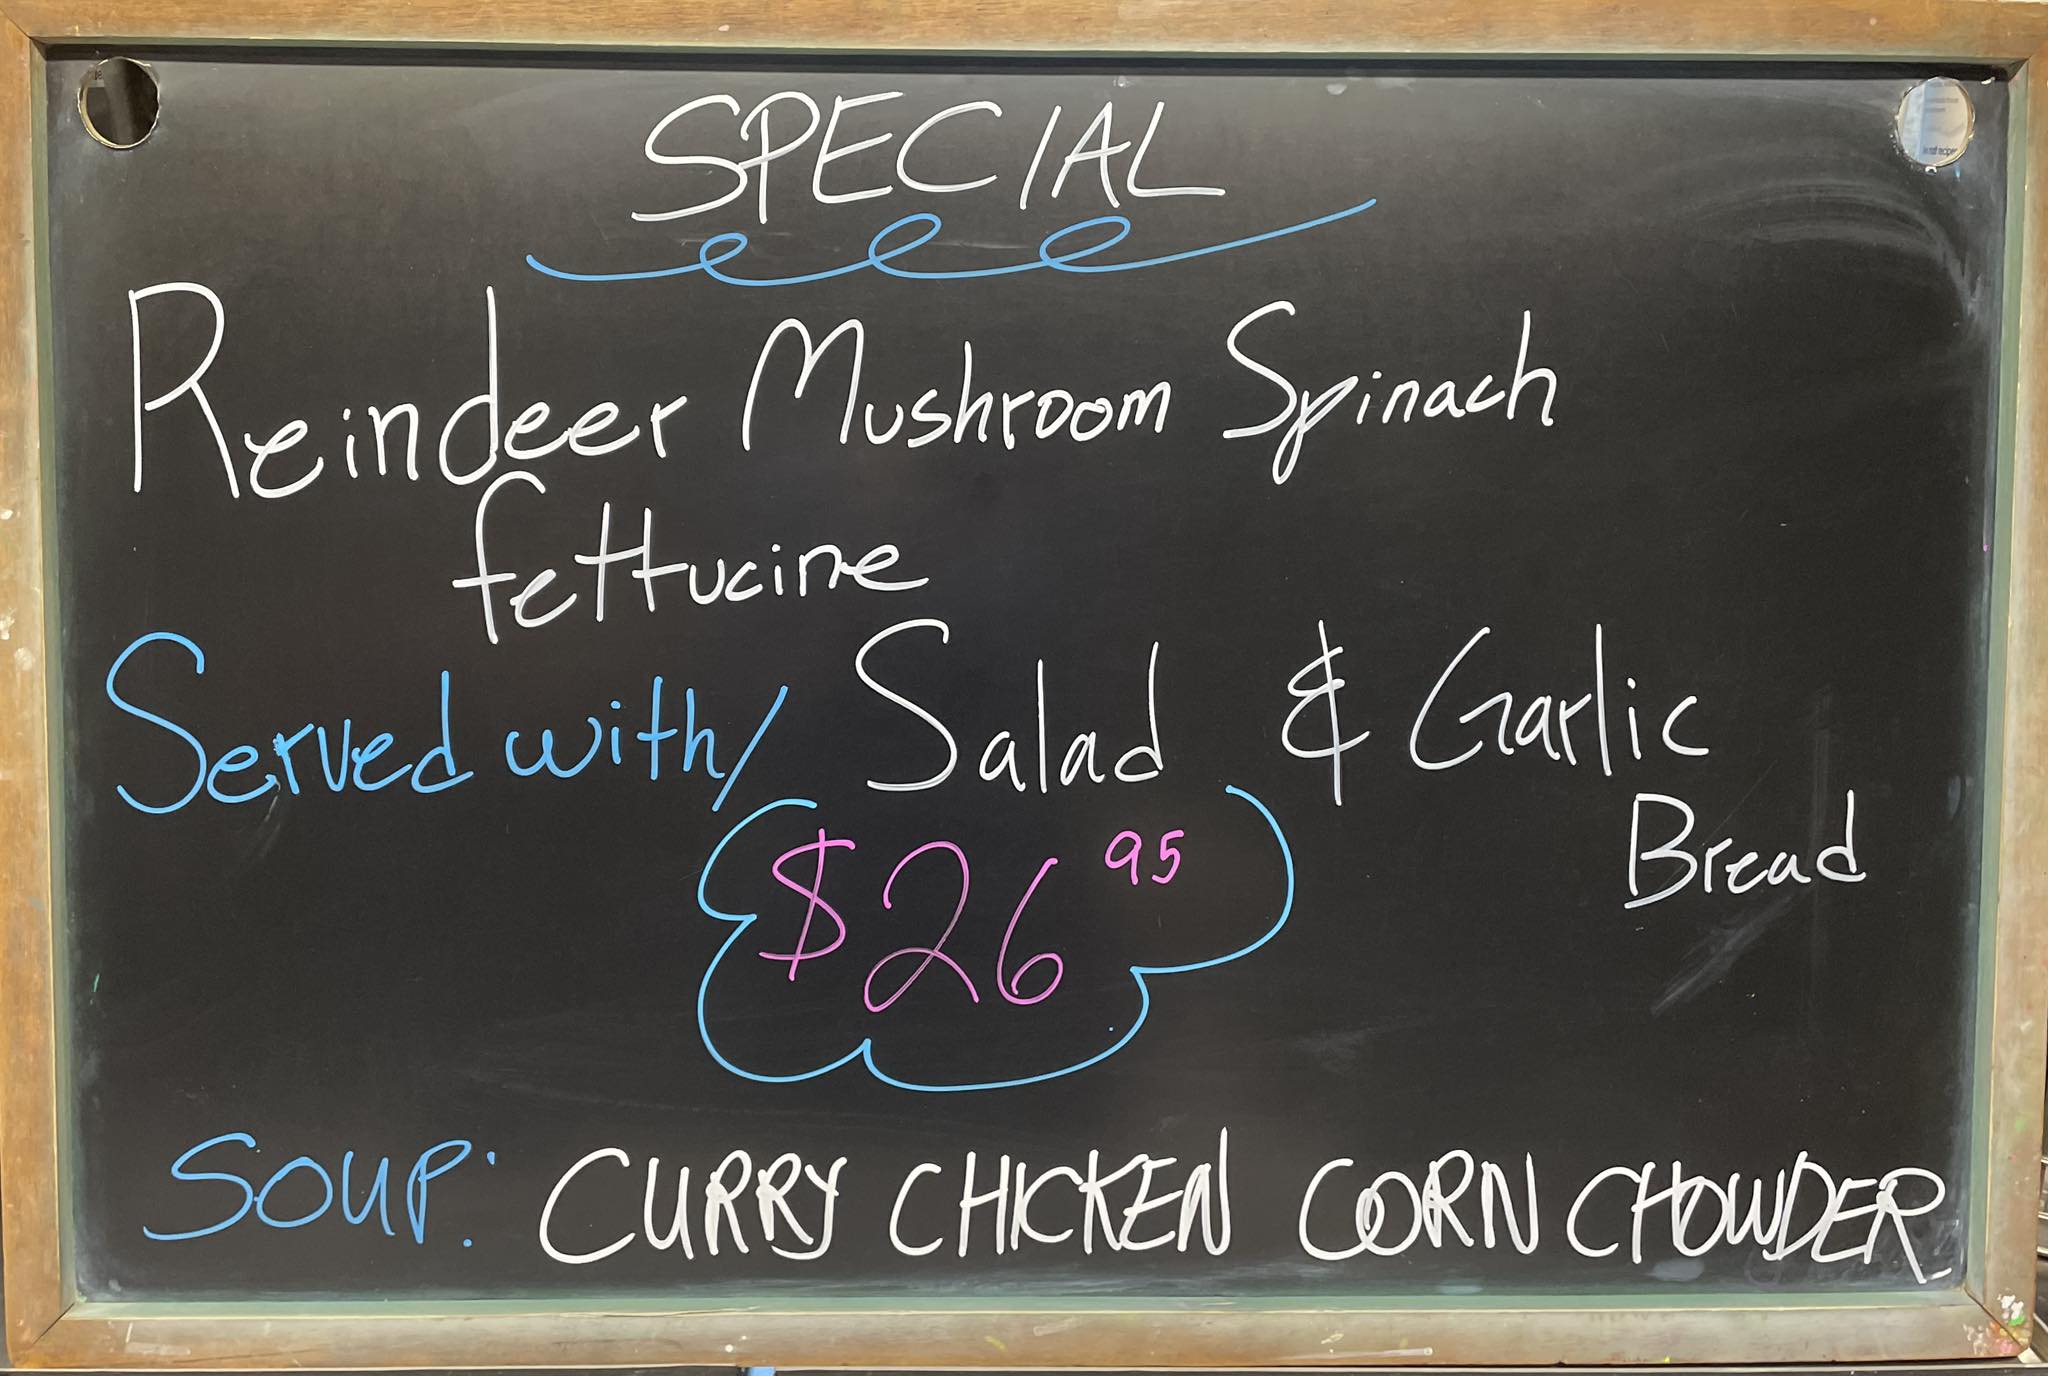 SPECIAL
Reindeer Mushroom Spinach
fettucine
Served with/ Salad & Garlic
Bread
$26 95
SOUP: CURRY CHICKEN CORN CHOWDER